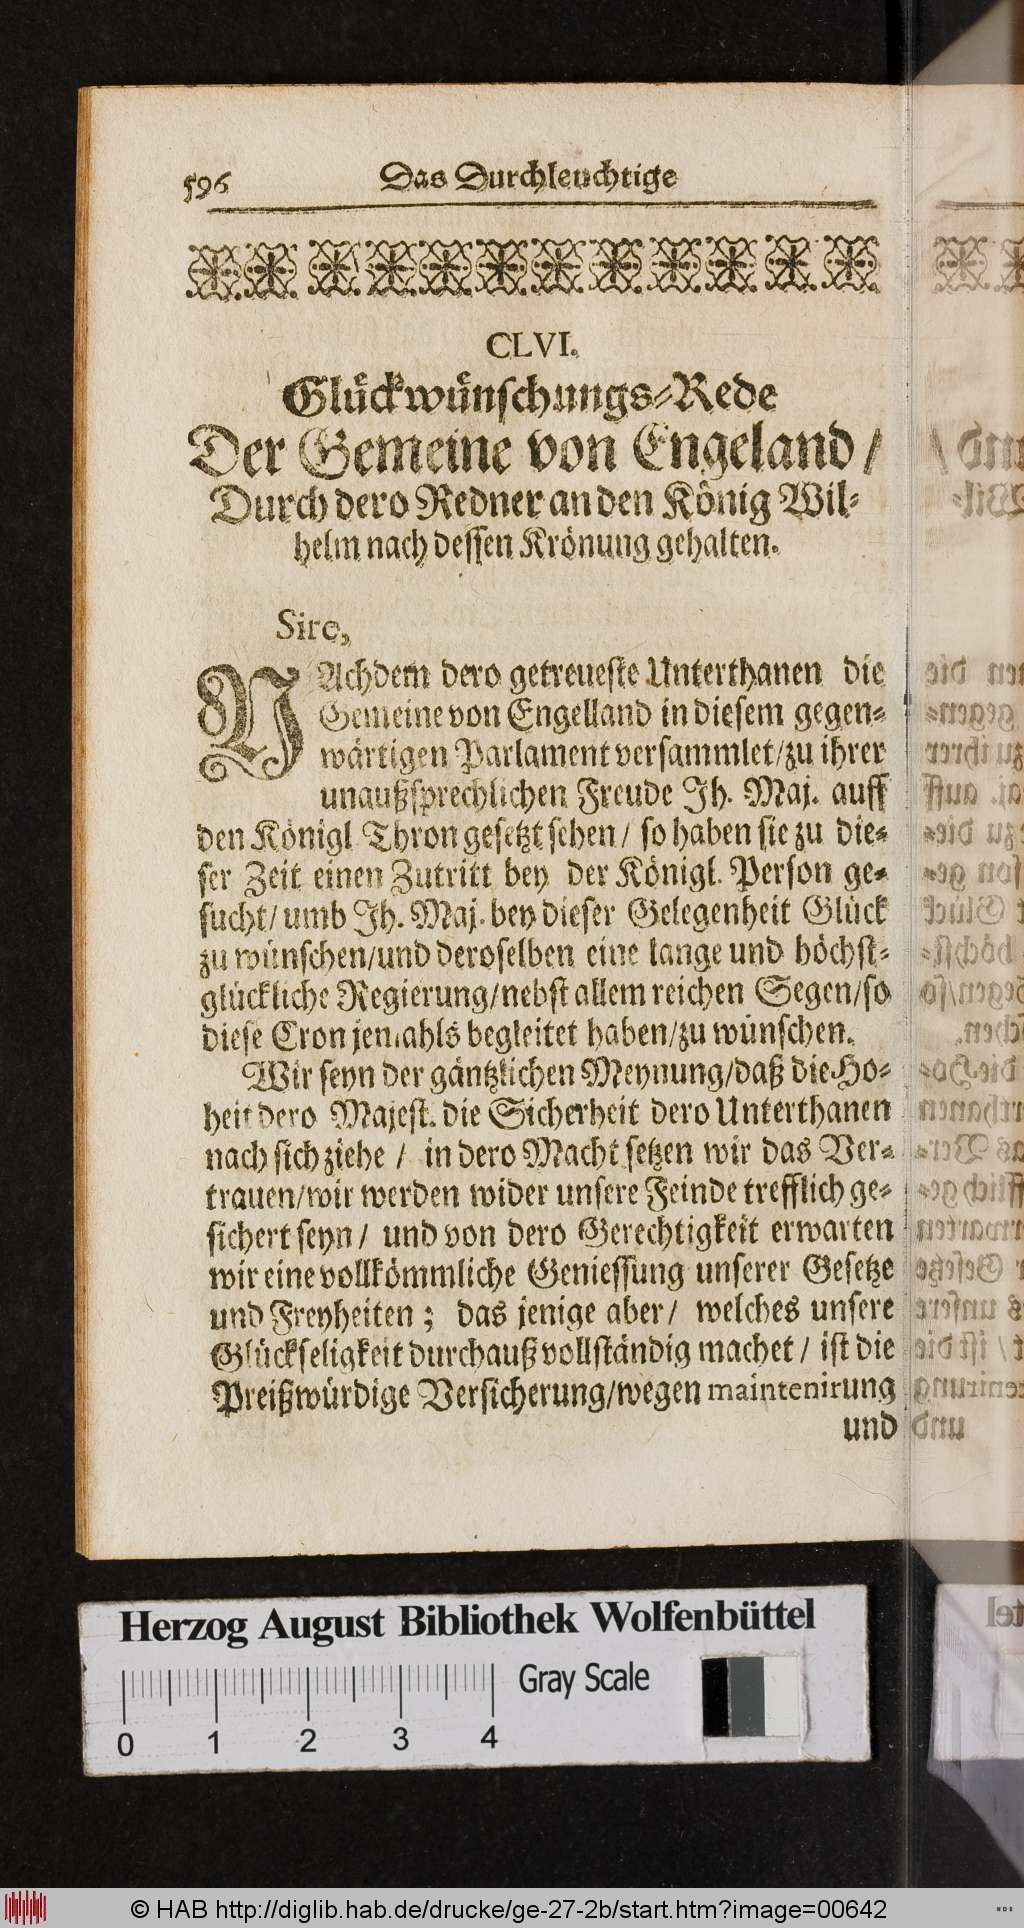 596 Das Durchleuchtige
CLVI.
Glückwünschungs-Rede
Der Gemeine von Engeland /
Durch dero Redner an den König Wil-
helm nach dessen Krönung gehalten.
Sire,
NAchdem dero getreueste Unterthanen die
Gemeine von Engelland in diesem gegen-
wärtigen Parlament versammlet/zu ihrer
unaußsprechlichen Freude Ih. Maj. auff
den Königl Thron gesetzt sehen / so haben sie zu die-
ser Zeit einen Zutritt bey der Königl. Person ge-
sucht/ umb Ih. Maj. bey dieser Gelegenheit Glück
zu wünschen/und deroselben eine lange und höchst-
glückliche Regierung/nebst allem reichen Segen/so
diese Cron jemahls begleitet haben/zu wünschen.
Wir seyn der gäntzlichen Meynung/daß die Ho-
heit dero Majest. die Sicherheit dero Unterthanen
nach sich ziehe / in dero Macht setzen wir das Ver-
trauen/wir werden wider unsere Feinde trefflich ge-
sichert seyn / und von dero Gerechtigkeit erwarten
wir eine vollkömmliche Geniessung unserer Gesetze
und Freyheiten ; das jenige aber / welches unsere
Glückseligkeit durchauß vollständig machet / ist die
Preißwürdige Versicherung/wegen maintenirung
und
Herzog August Bibliothek Wolfenbüttel
Gray Scale
0 1 2 3 4
© HAB http://diglib.hab.de/drucke/ge-27-2b/start.htm?image=00642